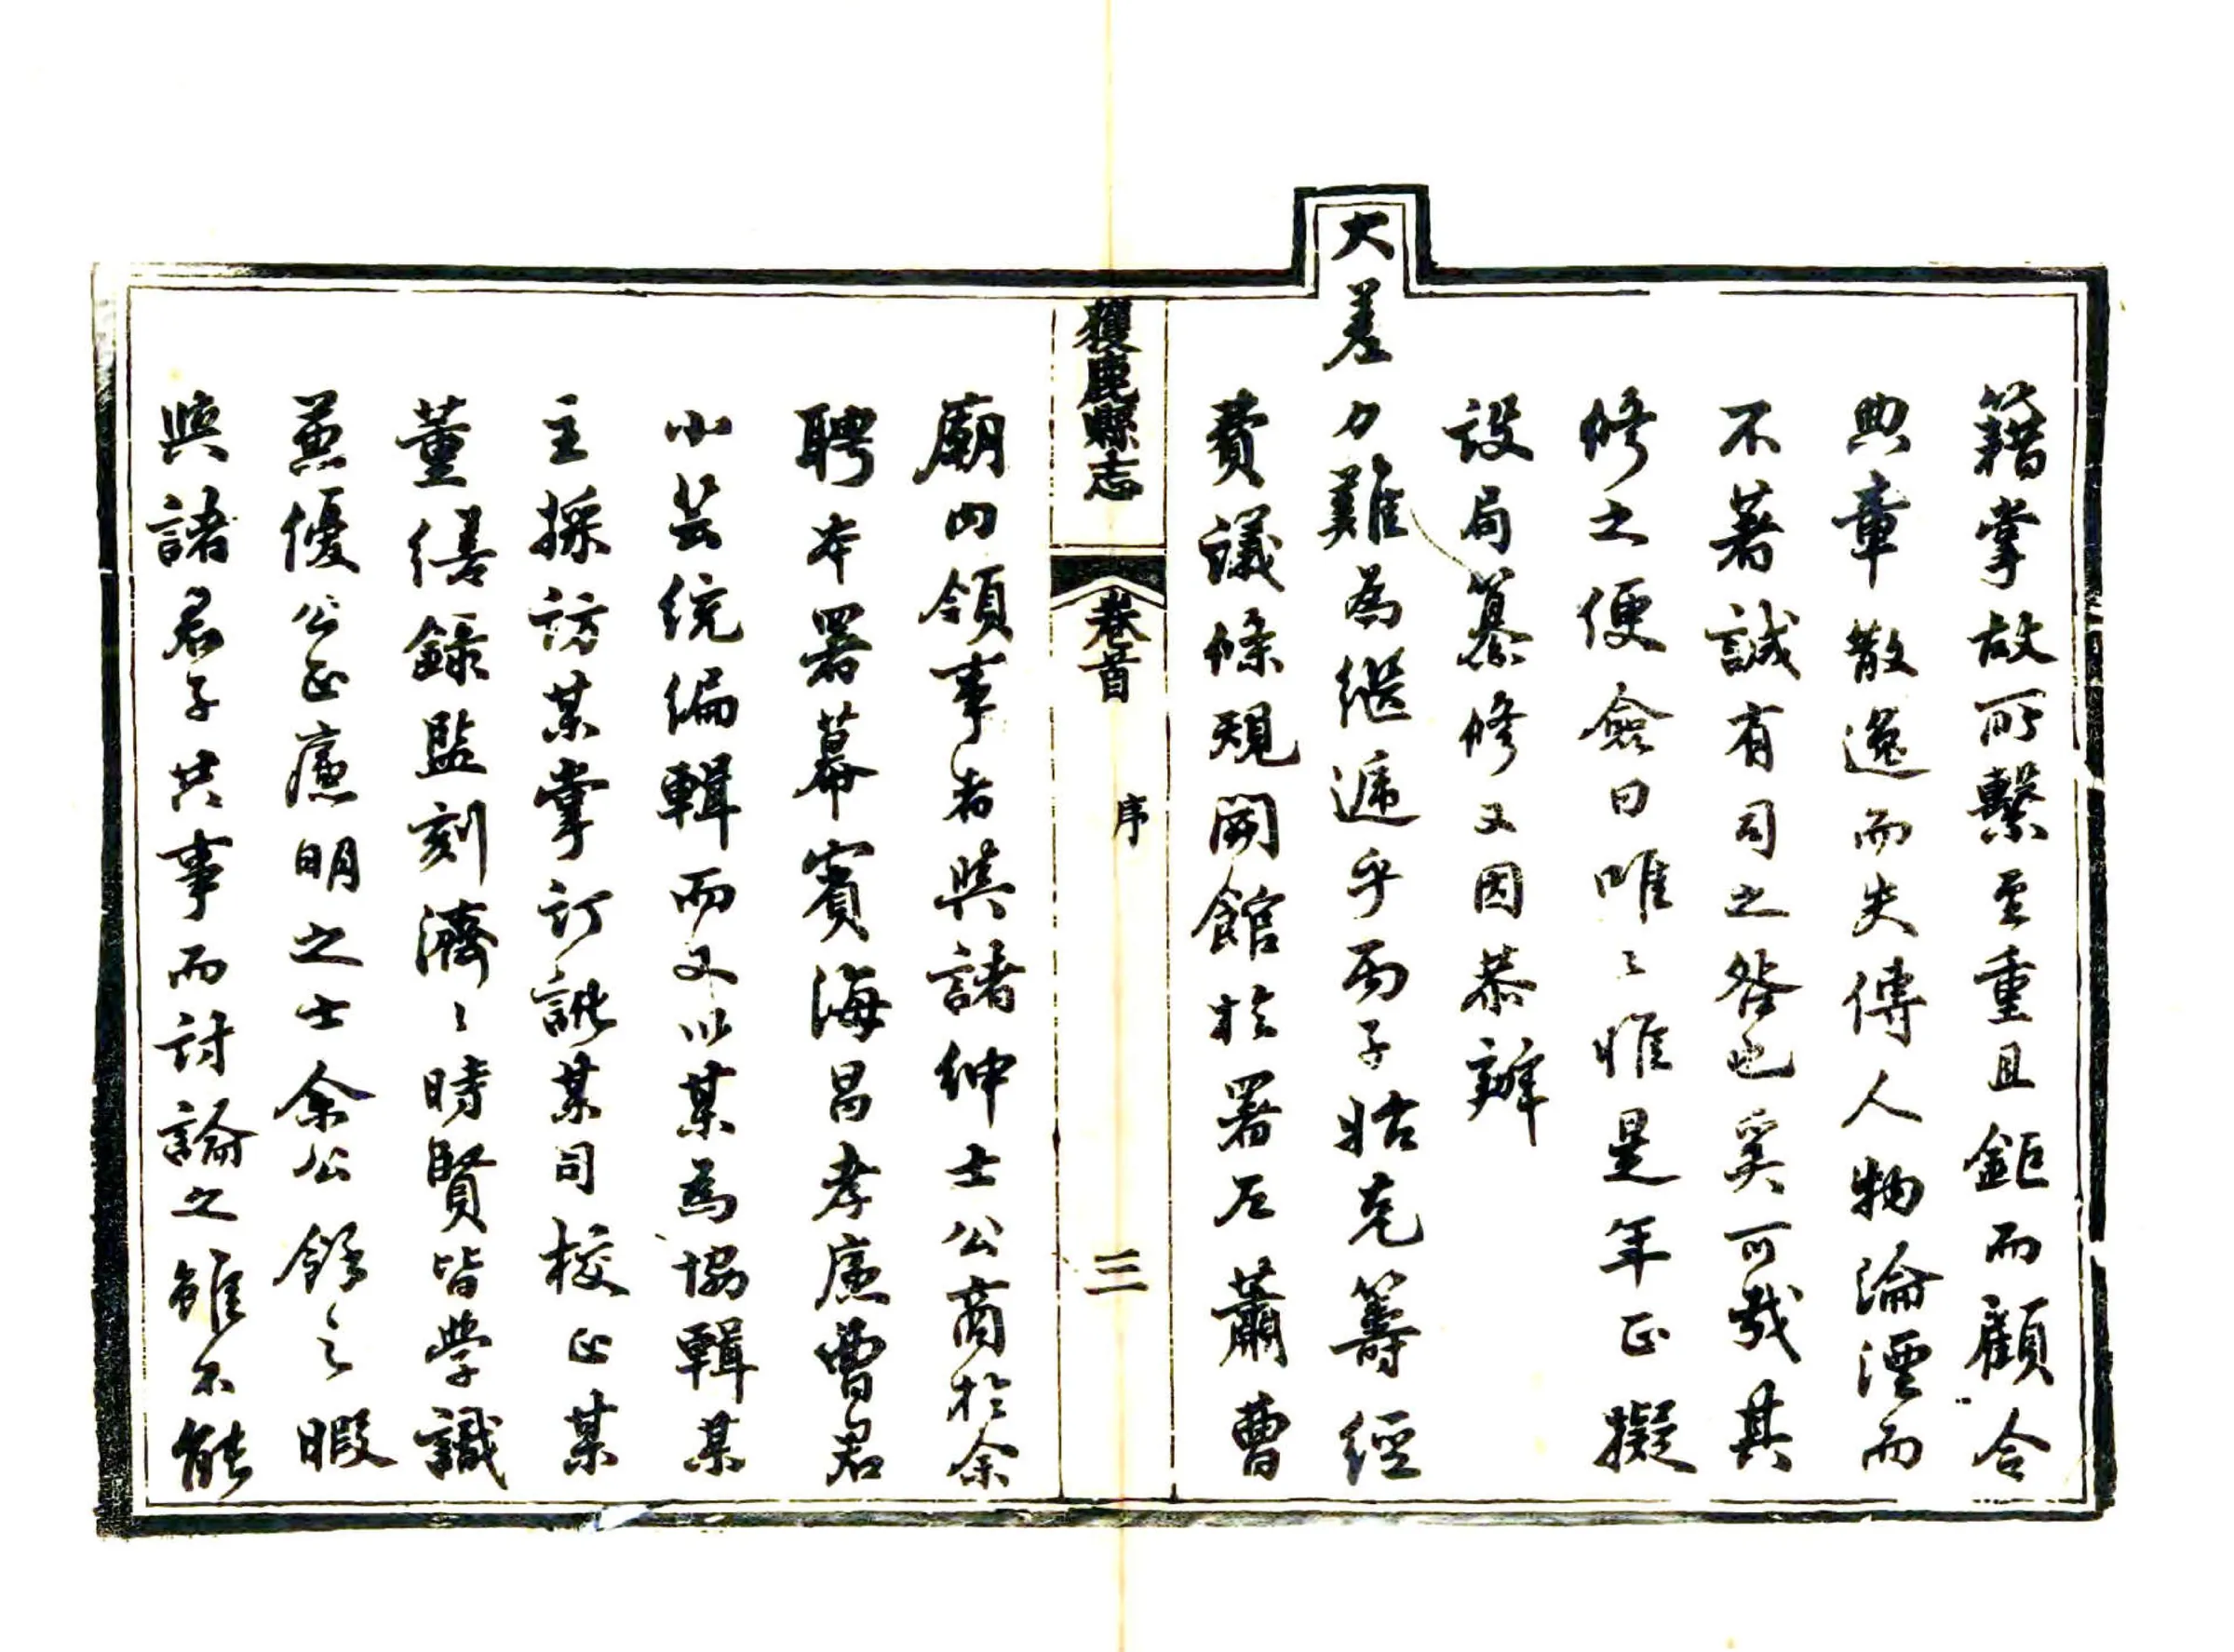 籍掌故所繫至重且鉅而顧令
典章散逸而失傳人物淪湮而
不著誠有司之咎也奚可哉其
修之便僉曰唯〻惟是年正擬
設局纂修又因恭辦
大差力難為繼遞乎丙子始克籌經
費議條規開館於署左蕭曹
獲鹿縣志
卷首
序
三
廟内領事者與諸紳士公商於余
聘本署幕賓海昌孝廉曹君
小芸統編輯而又以某為協輯某
主採訪某掌訂訛某司校正某
董繕錄監刻濟〻時賢皆學識
兼優公正廉明之士余公餘之暇
與諸君子共事而討論之雖不能